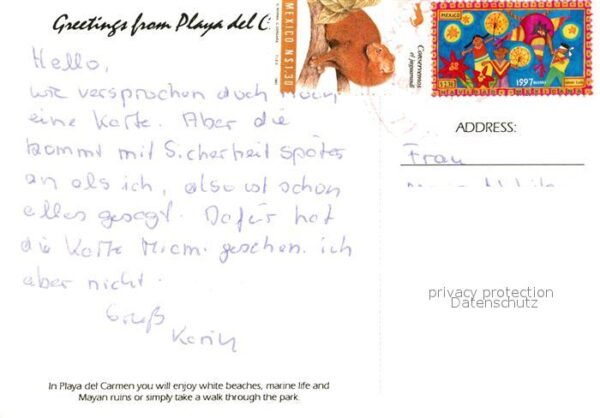 Greetings from Playa del C
MEXICO N$1.30
Conservemos
el jaguarundi
MEXICO
1997
Hello,
wie versprochen doch noch
eine Karte. Aber die
kommt mit Sicherheit später
an als ich, also ist schon
alles gesagt. Dafür hat
die Karte Miami gesehen. ich
aber nicht.
Gruß
Karin
ADDRESS:
Frau
privacy protection
Datenschutz
In Playa del Carmen you will enjoy white beaches, marine life and
Mayan ruins or simply take a walk through the park.